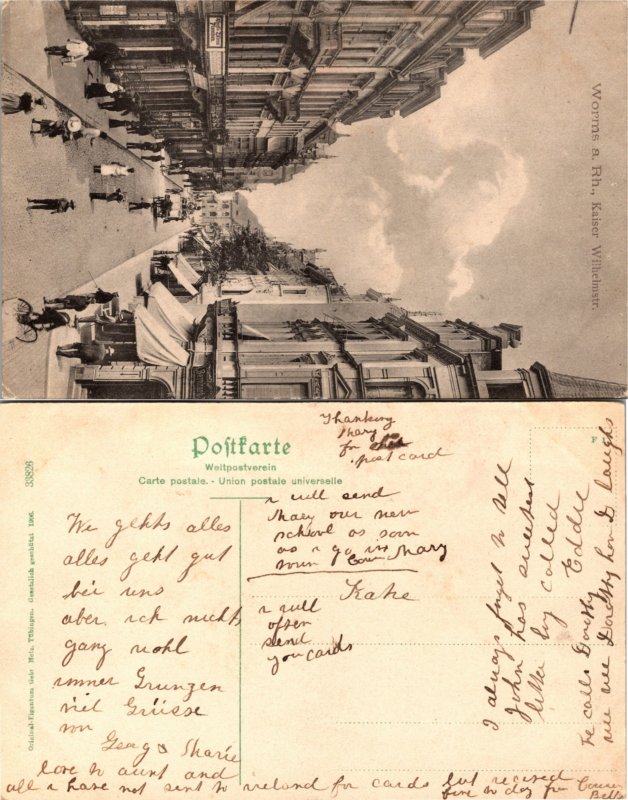 Worms a. Rh., Kaiser Wilhelmstr.
Postkarte
Weltpostverein
Carte postale. - Union postale universelle
33826
Original-Eigentum Gebr. Metz, Tübingen. Gesetzlich geschützt 1906.
Thanking
Mary
for
post card
We gehts alles
alles geht gut
bei uns
aber ich nicht
ganz wohl
immer Grunzen
viel Grüsse
von
Georg & Marie
love to aunt and
all I have not sent to ireland for cards but received
five to day from Cousin
Bella
I will send
Mary our new
school as soon
as I go in
Cousin Mary
Kate
I will
often
send
you cards
I always forget to tell
John has sweetest
little boy called
Eddie
he calls Dorothy
we are Dorothy how I laughs